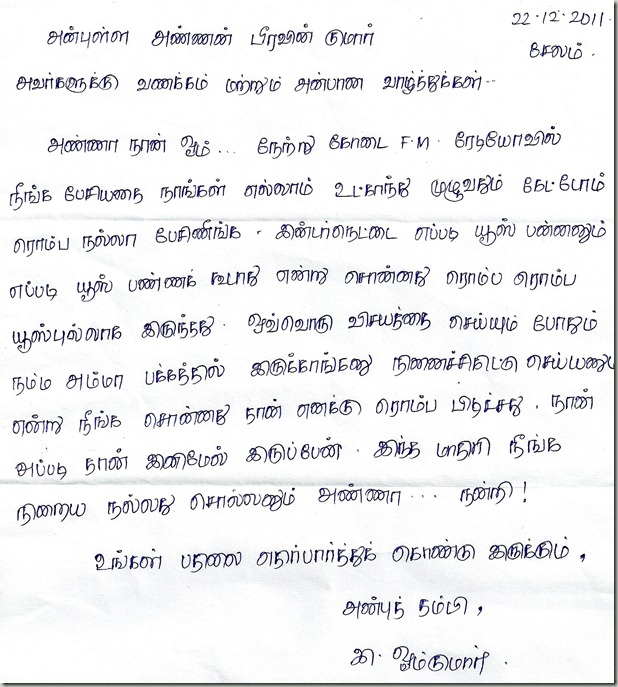 22-12-2011.
அன்புள்ள அண்ணன் பிரவின் குமார்
சேலம்.
அவர்களுக்கு வணக்கம் மற்றும் அன்பான வாழ்த்துக்கள்..
அண்ணா நான் ஓம்... நேற்று கோடை F.M. ரேடியோவில்
நீங்க பேசியதை நாங்கள் எல்லாம் உட்காந்து முழுவதும் கேட்போம்
ரொம்ப நல்லா பேசினீங்க. இன்டர்நெட்டை எப்படி யூஸ் பன்னனும்
எப்படி யூஸ் பண்ணக் கூடாது என்று சொன்னது ரொம்ப ரொம்ப
யூஸ்புல்லாக இருந்தது. ஒவ்வொரு விசயத்தை செய்யும் போதும்
நம்ம அம்மா பக்கத்தில் இருக்காங்கனு நினைச்சிகிட்டு செய்யனும்
என்று நீங்க சொன்னது தான் எனக்கு ரொம்ப பிடிச்சது. நான்
அப்படி தான் இனிமேல் இருப்பேன். இந்த மாதிரி நீங்க
நிறைய நல்லது சொல்லனும் அண்ணா... நன்றி!
உங்கள் பதிலை எதிர்பார்த்துக் கொண்டு இருக்கும்,
அன்புத் தம்பி,
க. ஓம்குமார்.